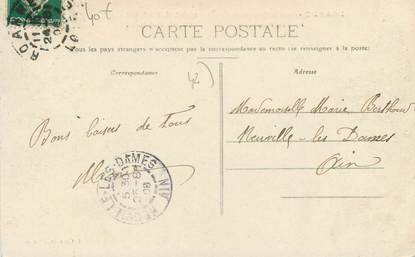 40f
CARTE POSTALE
Tous les pays étrangers n'acceptent pas la correspondance au recto (se renseigner à la poste)
Correspondance
Adresse
42
Mademoiselle Marie Berthoud
Neuville-les-Dames
Ain
Bons baisers de tous
LE-LES-DAMES AIN
08